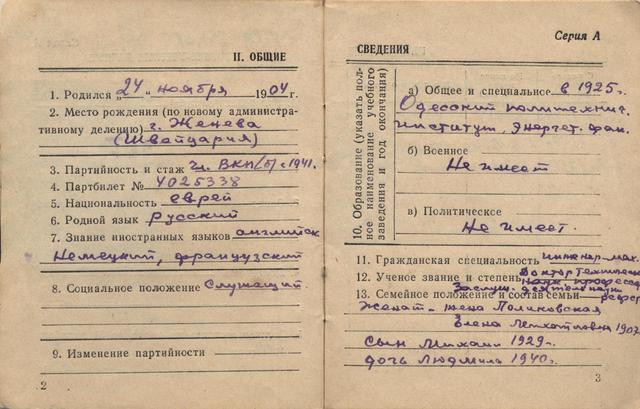 II. ОБЩИЕ
1. Родился „24“ ноября 1904 г.
2. Место рождения (по новому администра-
тивному делению) г. Женева
(Швейцария)
3. Партийность и стаж чл. ВКП(б) с 1941.
4. Партбилет № 4025338
5. Национальность еврей
6. Родной язык русский
7. Знание иностранных языков английск
немецкий, французский
8. Социальное положение Служащий
9. Изменение партийности
2
Серия А
СВЕДЕНИЯ
10. Образование (указать пол-
ное наименование учебного
заведения и год окончания)
а) Общее и специальное в 1925 г.
Одесский политехнич.
институт, энергет. фак.
б) Военное
Не имеет
в) Политическое
Не имеет.
11. Гражданская специальность инженер-мех.
12. Ученое звание и степень Доктор Технических
наук профессор
Заслуж. деятель науки
13. Семейное положение и состав семьи РСФСР
Женат - жена Поликовская
Елена 1907
сын Михаил 1929 г.
дочь Людмила 1940 г.
3